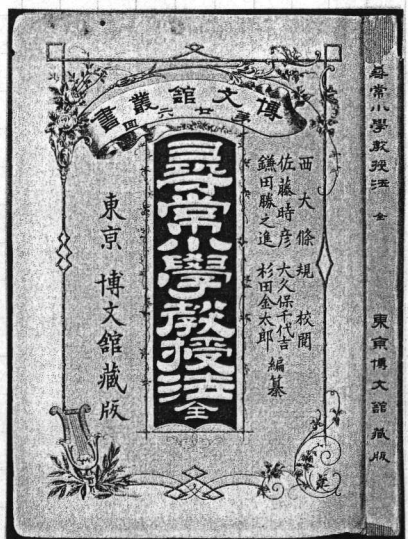 博文館叢書
第廿六
西大條規 校閲
佐藤時彦 大久保千代吉
鎌田勝之進 杉田金太郎
編纂
尋常小學教授法 全
東京 博文館藏版
尋常小學教授法 全
東京博文館藏版